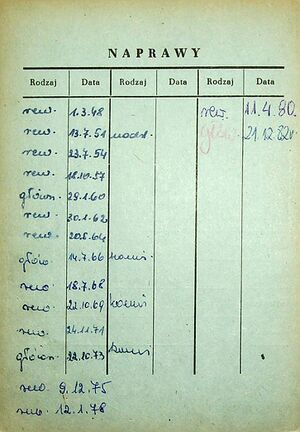 NAPRAWY
Rodzaj Data Rodzaj Data Rodzaj Data
rew. 1.3.48 rew. 11.4.80.
rew. 13.7.51 główn. 21.12.82r
rew. 23.7.54
rew. 18.10.57
główn. 29.1.60
rew. 30.1.62
rew. 20.8.64
główn. 14.7.66
rew. 18.7.68
rew. 22.10.69
rew. 24.11.71
główn. 22.10.73
rew. 9.12.75
rew. 12.1.78